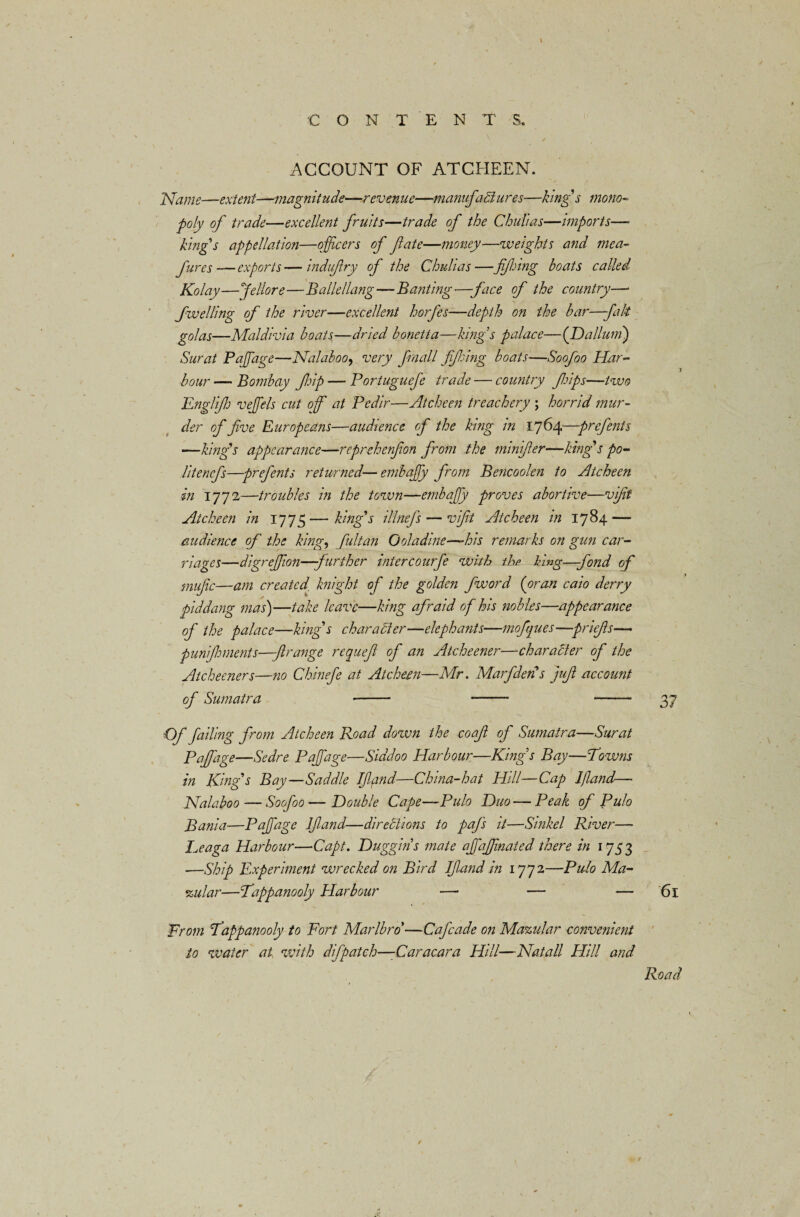 CONTENTS.
ACCOUNT OF ATCHEEN.
Name—extent—magnitude—revenue—manufactures—king's mono-
poly of trade—excellent fruits—trade of the Chulias—imports—
king's appellation—officers of ſtate—money—weights and mea-
ſures—exports—induſtry of the Chulias—fiſhing boats called
Kolay—Jellore—Ballellang—Banting—face of the country—
ſwelling of the river—excellent horſes—depth on the bar—ſalt
golas—Maldivia boats—dried bonetta—king's palace—(Dallum)
Surat Paſſage—Nalaboo, very ſmall fiſhing boats—Sooſoo Har-
bour—Bombay ſhip—Portugueſe trade—country ſhips—two
Engliſh veſſels cut off at Pedir—Atcheen treachery; horrid mur-
der of five Europeans—audience of the king in 1764—preſents
—king's appearance—reprehenſion from the miniſter—king's po-
liteneſs—preſents returned—embaſſy from Bencoolen to Atcheen
in 1772—troubles in the town—embaſſy proves abortive—viſit
Atcheen in 1775—king's illneſs—viſit Atcheen in 1784—
audience of the king, ſultan Ooladine—his remarks on gun car-
riages—digreſſion—further intercourſe with the king—fond of
muſic—am created knight of the golden ſword (oran caio derry
piddang mas)—take leave—king afraid of his nobles—appearance
of the palace—king's character—elephants—moſques—prieſts—
puniſhments—ſtrange requeſt of an Atcheener—character of the
Atcheeners—no Chineſe at Atcheen—Mr. Marſden's juſt account
of Sumatra — — — 37
Of ſailing from Atcheen Road down the coaſt of Sumatra—Surat
Paſſage—Sedre Paſſage—Siddoo Harbour—King's Bay—Towns
in King's Bay—Saddle Iſland—China-hat Hill—Cap Iſland—
Nalaboo—Sooſoo—Double Cape—Pulo Duo—Peak of Pulo
Bania—Paſſage Iſland—directions to paſs it—Sinkel River—
Leaga Harbour—Capt. Duggin's mate aſſaſſinated there in 1753
—Ship Experiment wrecked on Bird Iſland in 1772—Pulo Ma-
zular—Tappanooly Harbour — — — 61
From Tappanooly to Fort Marlbro'—Caſcade on Mazular convenient
to water at with diſpatch—Caracara Hill—Natall Hill and
Road